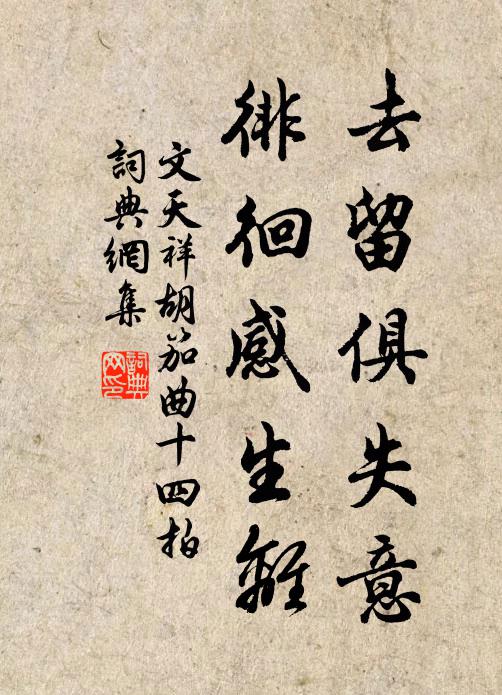 去留俱失意
徘徊感生離
文天祥胡笳曲十四拍
詞典網集
詞典网印